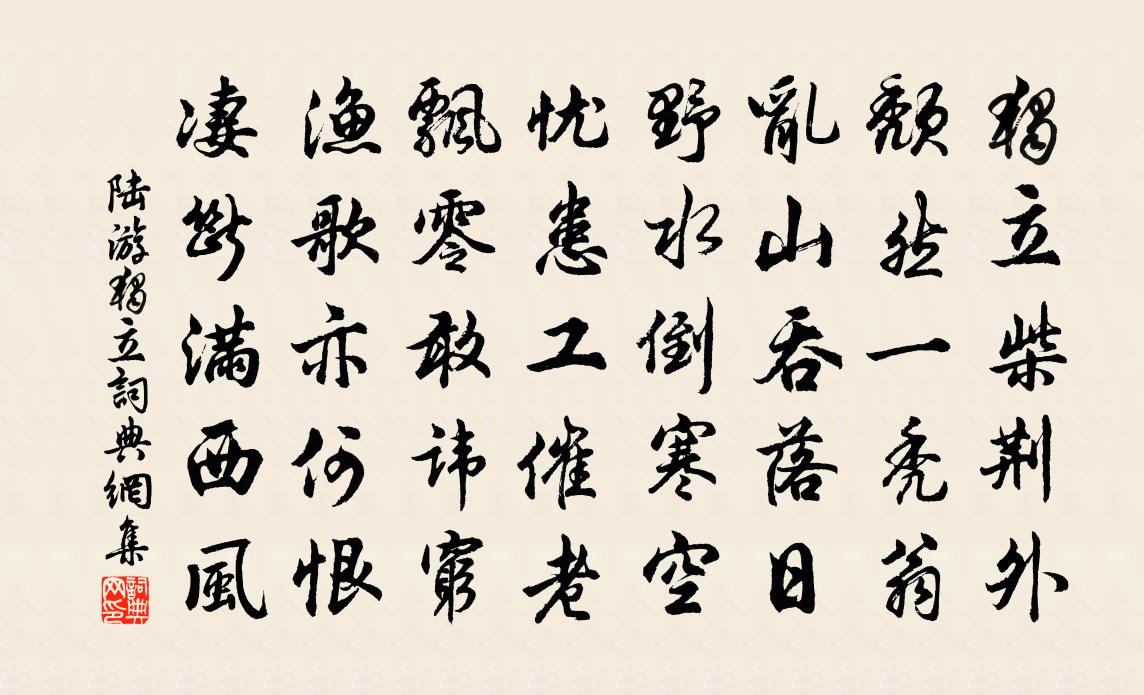 獨立柴荆外
頹然一禿翁
亂山吞落日
野水倒寒空
忧患工催老
飄零敢諱窮
漁歌亦何恨
凄斷滿西風
陸游獨立詞典網集
詞典
网印